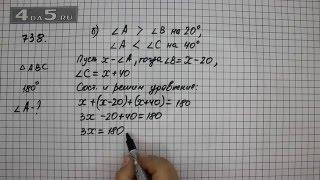 4DA5.RU
738.
△ABC
180°
∠A-?
б) ∠A > ∠B на 20°,
∠A < ∠C на 40°
Пусть x - ∠A, тогда ∠B = x - 20,
∠C = x + 40
Сост. и решим уравнение:
x + (x - 20) + (x + 40) = 180
3x - 20 + 40 = 180
3x = 180